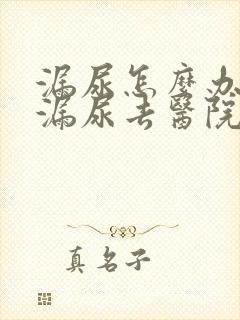 漏尿怎麼办
漏尿去醫院
真名子